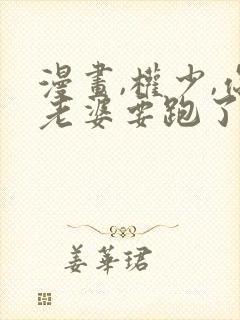 漫畫,權少,你
老婆要跑了
姜華珺